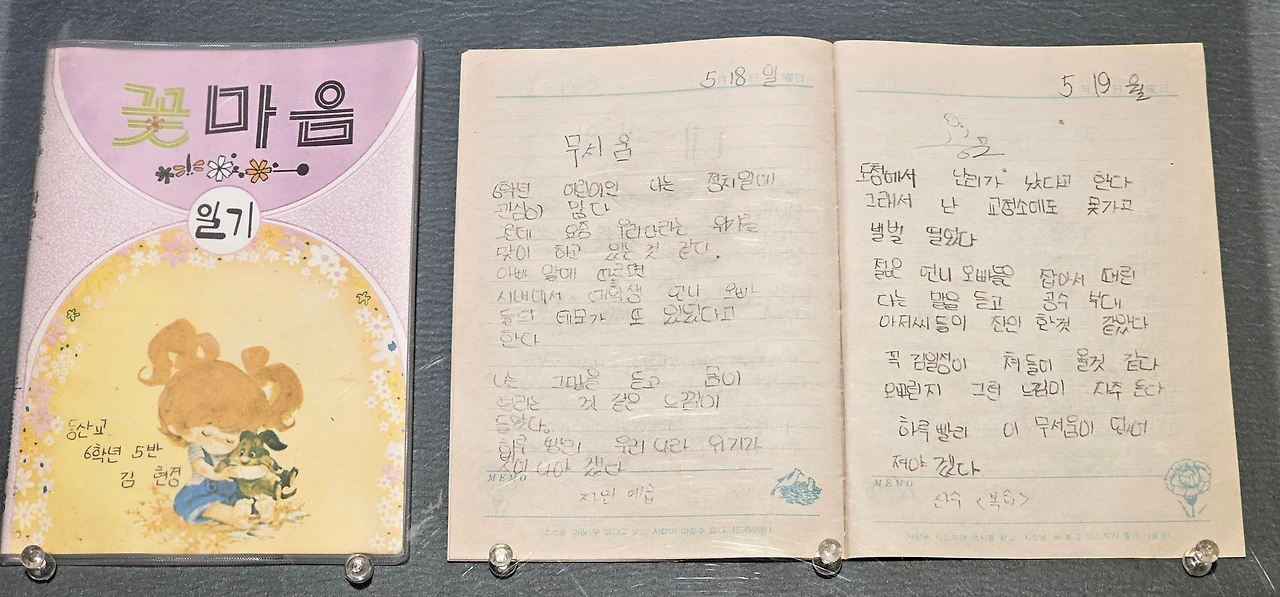 꽃마음
일기
동산교
6학년 5반
김 현경
5 18 일
무서움
6학년 어린이인 나는 정치일에
관심이 없다
운데 요즘 우리나라는 위기를
맞이 하고 있는 것 같다.
아빠 말에 따르면
시내에서 대학생 언니 오빠
들의 데모가 또 있었다고
한다
나는 그말을 듣고 몸이
떨리는 것 같은 느낌이
들었다.
하루 빨리 우리 나라 위기가
지나야 겠다
MEMO
자연 예습
5 19 월
도청에서 난리가 났다고 한다
그래서 난 교정소에도 못가고
벌벌 떨었다
젊은 언니 오빠들을 잡아서 때린
다는 말을 듣고 공수 부대
아저씨들이 잔인 한것 같았다
꼭 김일성이 쳐 들어 올것 같다
왜그런지 그런 느낌이 자주 든다
하루 빨리 이 무서움이 없어
져야 겠다
MEMO
산수 <복습>